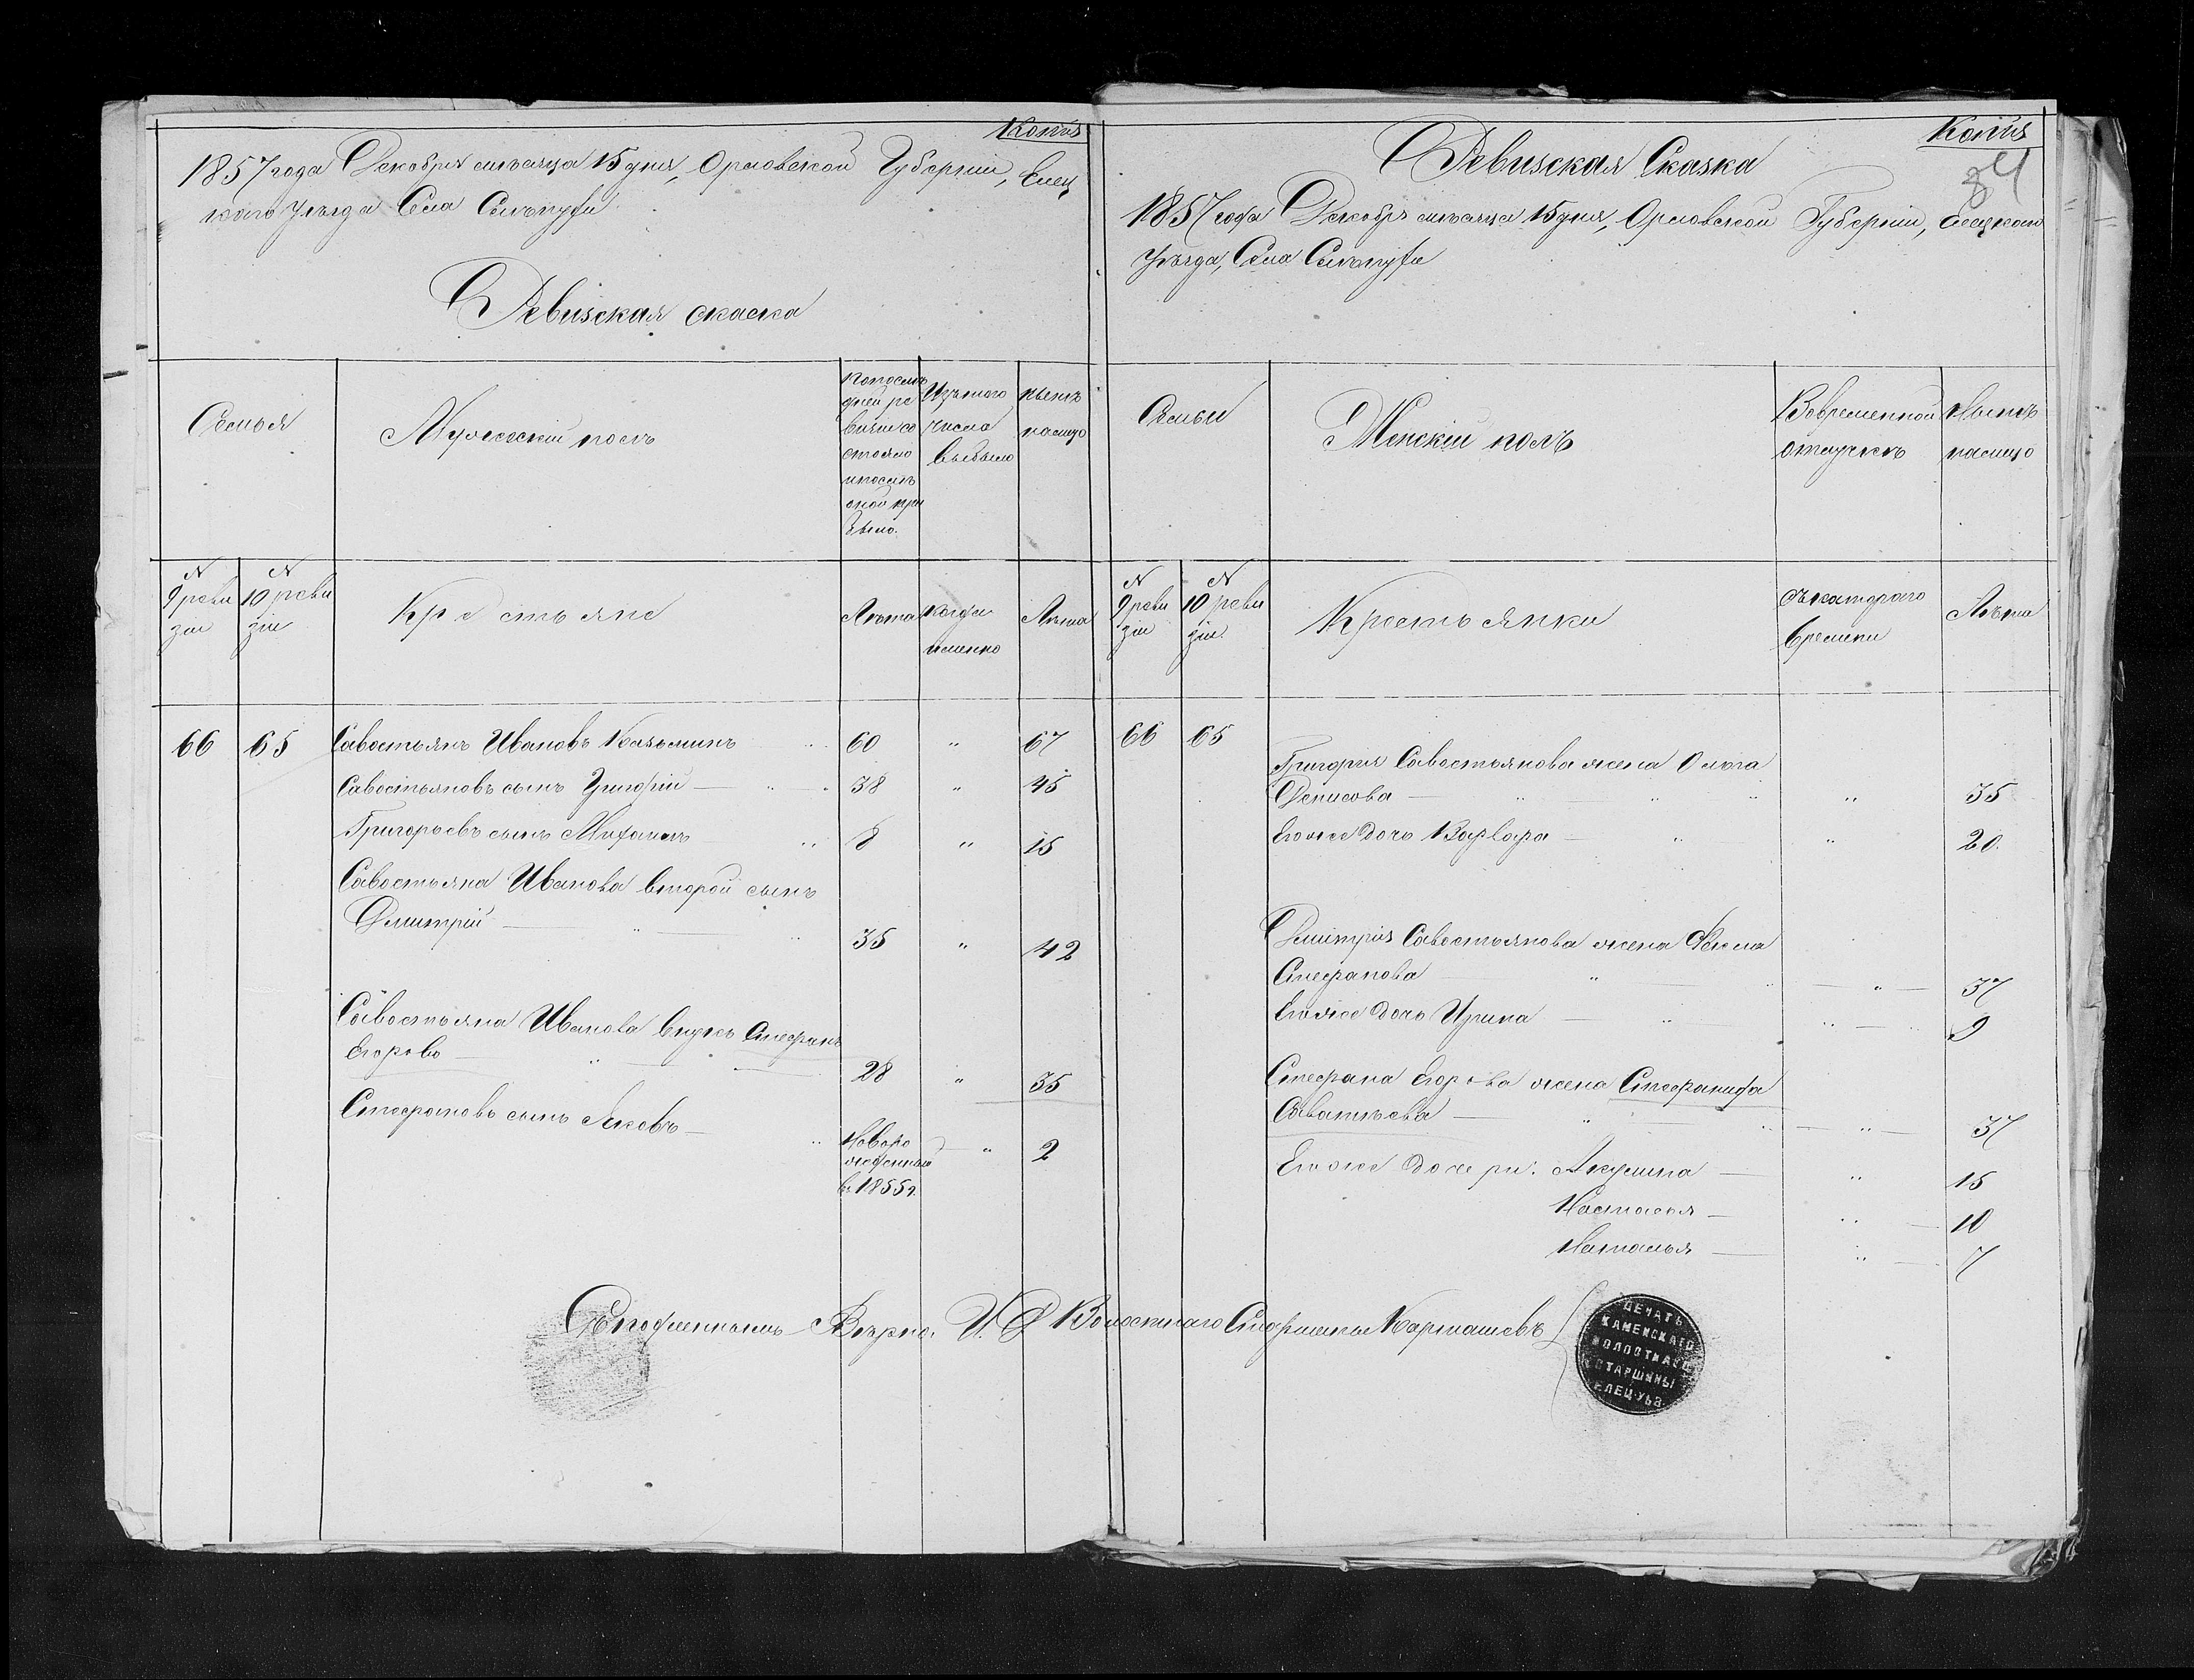 Копія
1857 года Декабря мѣсяца 15 дня, Орловской Губерніи, Елец
каго уѣзда Села
Ревизская скаска
Семья
Мужескій полъ
По послѣ
дней ре
визіи со
стояло
и послѣ
оной при
было.
Изъ того
числа
выбыло
Нынѣ
налицо
N
9 реви
зіи
N
10 реви
зіи
Крестьяне
Лѣта
когда
именно
Лѣта
66 65 Савостьянъ Ивановъ Козьминъ .. 60 " 67
Савостьяновъ сынъ Григорій — .. 38 " 45
Григорьевъ сынъ Михаилъ — .. 8 " 15
Савостьяна Иванова второй сынъ
Дмитрій — .. — .. 35 " 42
Савостьяна Иванова внукъ Стефанъ
Егорово — .. — 28 " 35
Стефановъ сынъ Яковъ — .. Новоро
жденный
в. 1855 г. " 2
Копія
84
Ревизская Сказка
1857 года Декабря мѣсяца 15 дня, Орловской Губерніи, Елецкаго
Уѣзда, Села
Семьи
Женскій полъ
Во временной
отлучкѣ
Нынѣ
налицо
N
9 реви
зіи
N
10 реви
зіи.
Крестьянки
Съ котораго
времени
Лѣта
66 65
Григорія Савостьянова жена Ольга
Денисова — .. — .. .. .. 35
Его же дочь Варвара — .. .. 20.
Дмитрія Савостьянова жена Фекла
Стефанова — .. — " — 37
Его же дочь Ирина — .. .. — 9
Стефана Егорова жена Стефанида
Саватѣева — .. — " — 37
Его же дочери: Акулина — .. 15
Настасья — .. — 10
Наталья — .. — 7
Съ подлиннымъ Вѣрно. И. Д. Волостнаго Старшины Карташевъ
ПЕЧАТЬ
КАМЕНСКАГО
ВОЛОСТНАГО
СТАРШИНЫ
ЕЛЕЦ. УѢЗ.